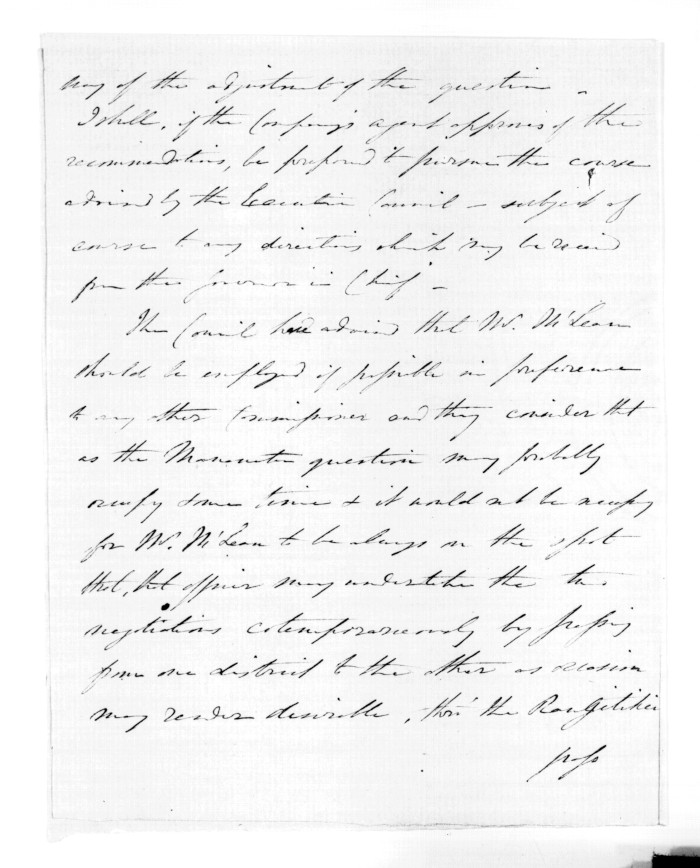 way of the adjustment of the question -
I shall, if the Company's agent approves of the
recommendation, be prepared to pursue the course
advised by the Executive Council - subject of
course to any directions which may be received
from the Governor in Chief -
The Council have advised that Mr. McLean
should be employed if possible in preference
to any other Commissioner and they consider that
as the Manawatu question may probably
occupy some time & it would not be necessary
for Mr. McLean to be always on the spot
that, that officer may undertake the two
negotiations cotemporaneously by passing
from one district to the other as occasion
may render desirable, tho' the Rangitikei